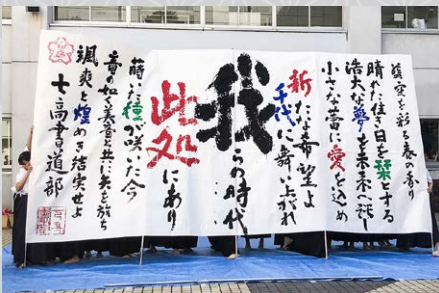 を彩る春の香り
晴れた佳き日を栞とする
浩大な夢を未来へ託し
小さな蕾に愛を込め
新たな希望よ
千代に舞い上がれ
我らの時代
此処にあり
蒔いた種が咲いた今
の如く美音と共に矢を放ち
颯爽と煌めき結実せよ
七高書道部